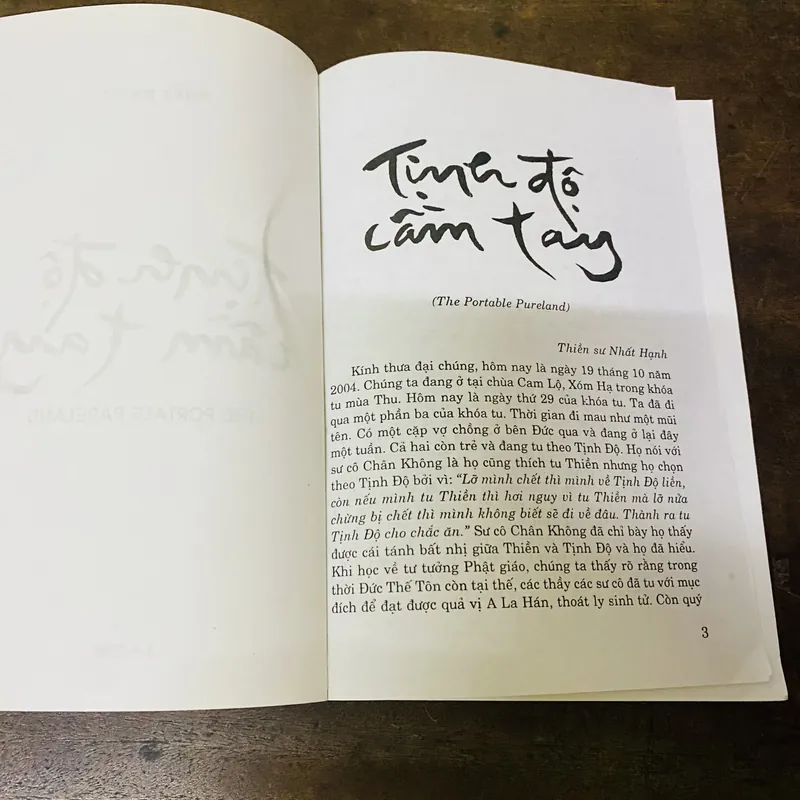 Tịnh độ
cầm tay
(The Portable Pureland)
Thiền sư Nhất Hạnh
Kính thưa đại chúng, hôm nay là ngày 19 tháng 10 năm
2004. Chúng ta đang ở tại chùa Cam Lộ, Xóm Hạ trong khóa
tu mùa Thu. Hôm nay là ngày thứ 29 của khóa tu. Ta đã đi
qua một phần ba của khóa tu. Thời gian đi mau như một mũi
tên. Có một cặp vợ chồng ở bên Đức qua và đang ở lại đây
một tuần. Cả hai còn trẻ và đang tu theo Tịnh Độ. Họ nói với
sư cô Chân Không là họ cũng thích tu Thiền nhưng họ chọn
theo Tịnh Độ bởi vì: “Lỡ mình chết thì mình về Tịnh Độ liền,
còn nếu mình tu Thiền thì hơi nguy vì tu Thiền mà lỡ nửa
chừng bị chết thì mình không biết sẽ đi về đâu. Thành ra tu
Tịnh Độ cho chắc ăn.” Sư cô Chân Không đã chỉ bày họ thấy
được cái tánh bất nhị giữa Thiền và Tịnh Độ và họ đã hiểu.
Khi học về tư tưởng Phật giáo, chúng ta thấy rõ rằng trong
thời Đức Thế Tôn còn tại thế, các thầy các sư cô đã tu với mục
đích để đạt được quả vị A La Hán, thoát ly sinh tử. Còn quý
3